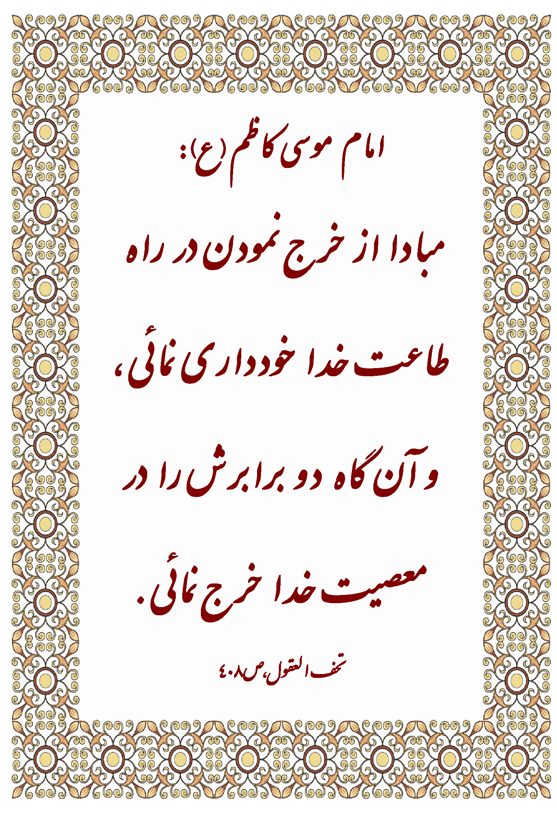 امام موسی کاظم (ع):
مبادا از خرج نمودن در راه
طاعت خدا خودداری نمائی،
و آن گاه دو برابرش را در
معصیت خدا خرج نمائی.
تحف العقول، ص۴۰۸